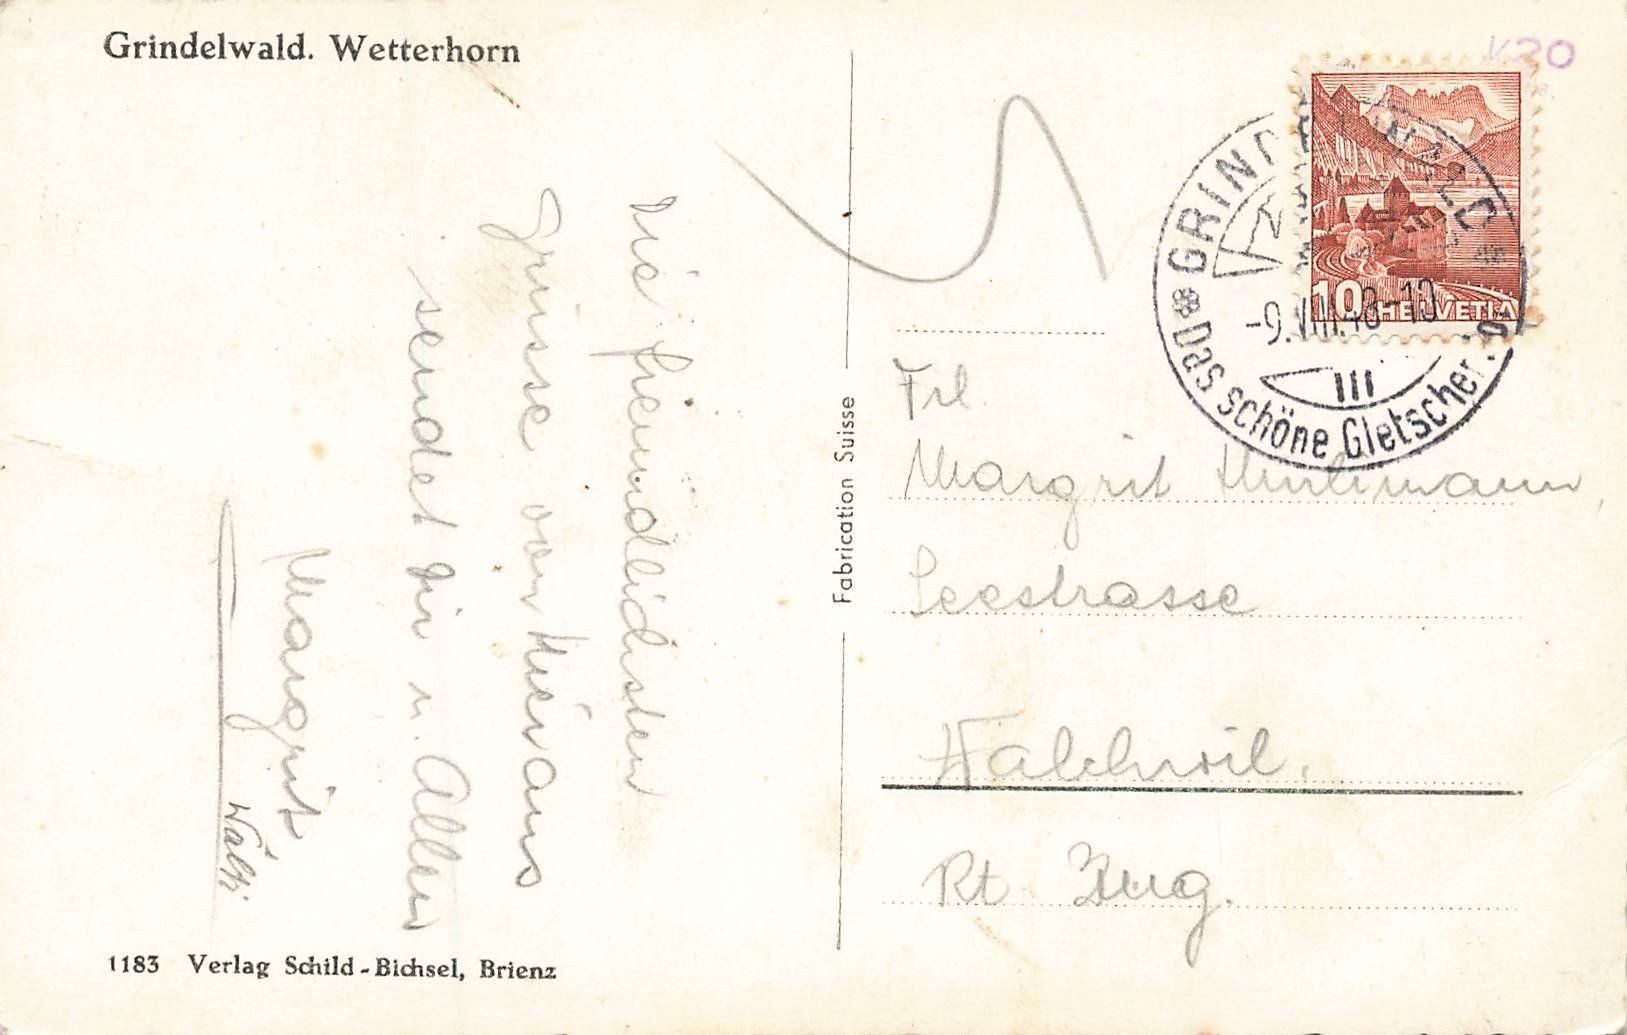 Grindelwald. Wetterhorn
Die freundlichsten
Grüsse von hier aus
sendet Dir u. Allen
Margrit
Wälti
Fabrication Suisse
V20
GRINDELWALD
-9.VIII.48-10
Das schöne Gletscher
10 HELVETIA
Frl.
Margrit Hürlimann,
Seestrasse
Walchwil.
Kt. Zug.
1183 Verlag Schild-Bichsel, Brienz